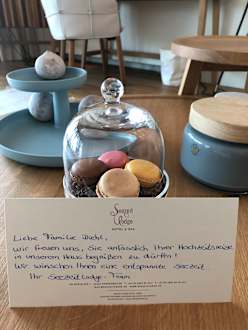 Seezeit
Lodge
HOTEL & SPA
Liebe Familie
wir freuen uns, Sie anlässlich Ihrer Hochzeitsreise
in unserem Haus begrüßen zu dürfen!
Wir wünschen Ihnen eine entspannte Seezeit
Ihr Seezeitlodge-Team